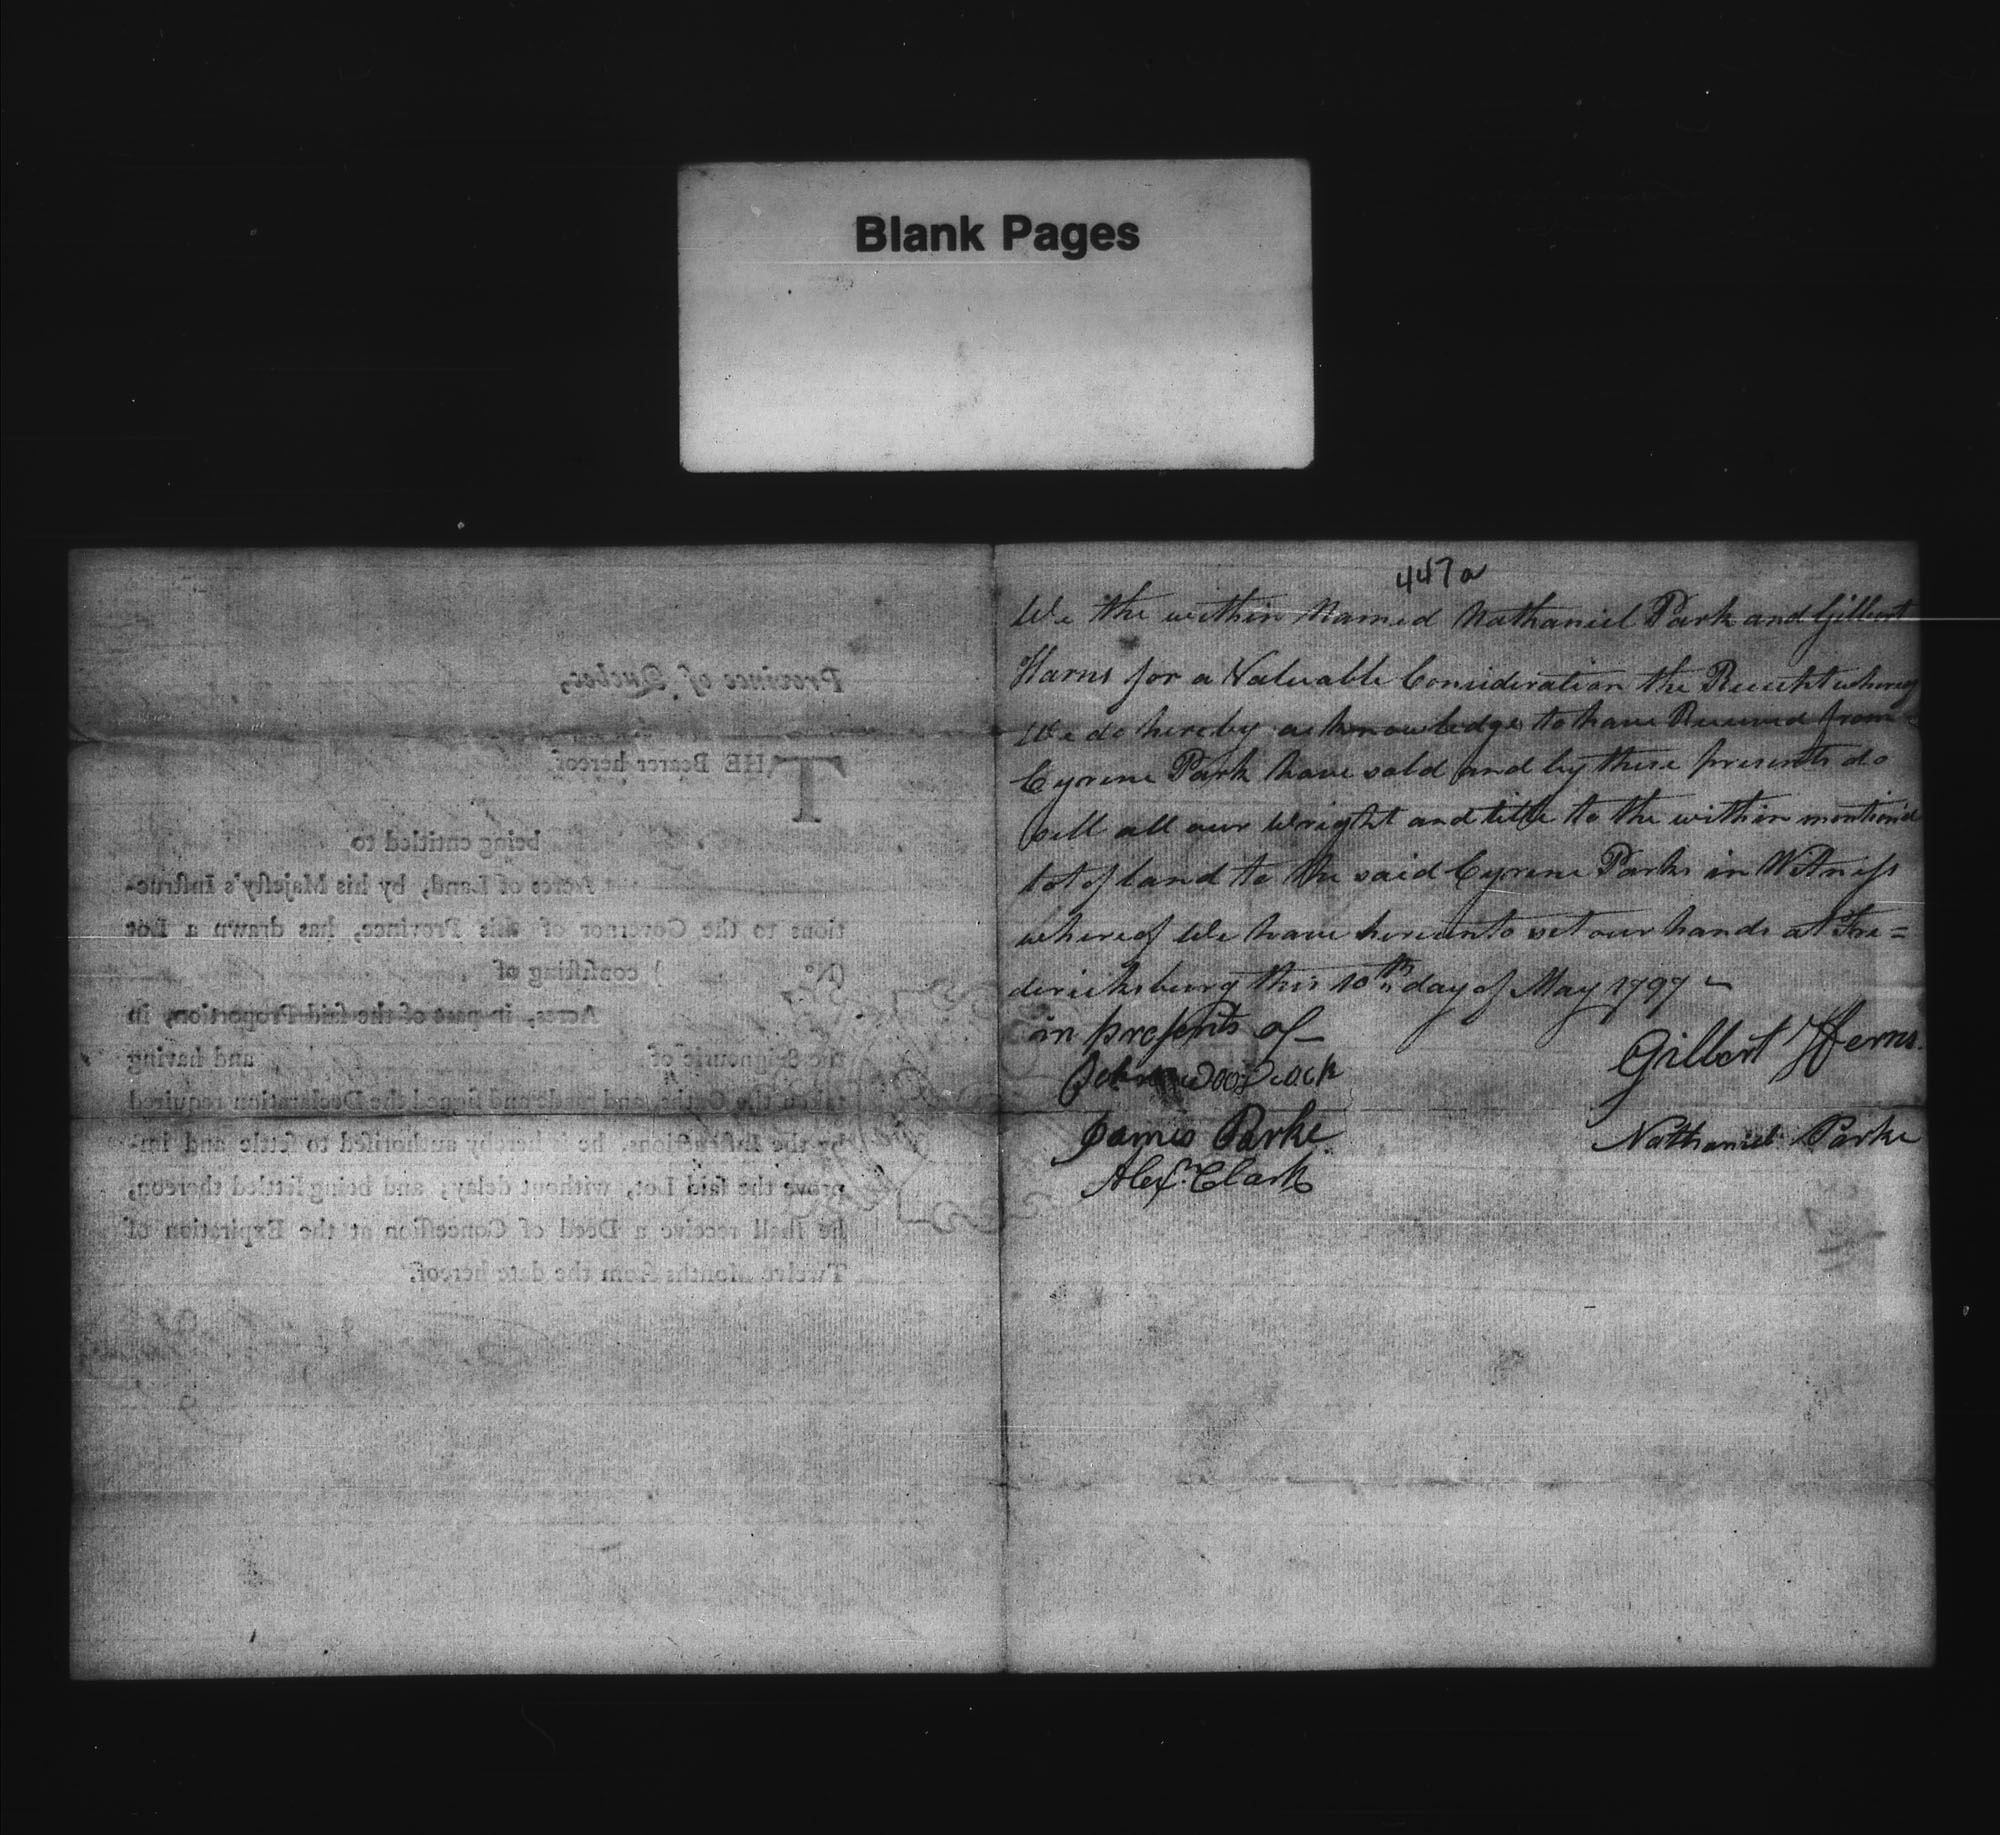 Blank Pages
447a
We the within Named Nathaniel Park and Gilbert
Harns for a Valuable Consideration the Receipt whereof
We do hereby acknowledge to have Received from
Cyrene Park have sold and by these presents do
sell all our Wright and title to the within mention'd
lot of land to the said Cyrene Parks in Witness
whereof We have hereunto set our hands at Fre=
dericksburg this 10th day of May 1797
in presents of
Gilbert Herns
John
James Parke
Nathaniel Parke
Alexr. Clark
Province of Quebec,
THE Bearer hereof
being entitled to
Acres of Land, by his Majesty's Instruc-
tions to the Governor of this Province, has drawn a Lot
(No. ) consisting of
Acres, in part of the said Proportion, in
the Seigneurie of and having
taken the Oaths, and made and signed the Declaration required
by the Instructions, he is hereby authorised to settle and im-
prove the said Lot, without delay; and being settled thereon,
he shall receive a Deed of Concession at the Expiration of
Twelve Months from the date hereof.